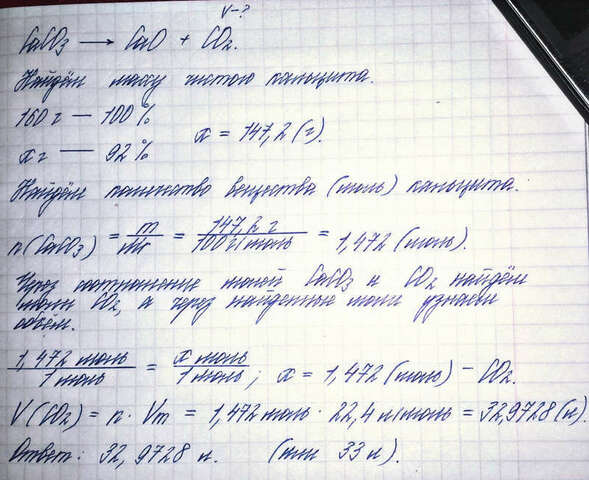 V-?
CaCO₃ → CaO + CO₂.
Найдём массу чистого кальцита.
160 г — 100 %
x г — 92 %
x = 147,2 (г).
Найдём количество вещества (моль) кальцита.
n(CaCO₃) = m/Mr = 147,2 г/100 г/моль = 1,472 (моль).
Через соотношение молей CaCO₃ и CO₂ найдём
моли CO₂, а через найденные моли узнаем
объём.
1,472 моль/1 моль = x моль/1 моль; x = 1,472 (моль) - CO₂.
V(CO₂) = n · Vm = 1,472 моль · 22,4 л/моль = 32,9728 (л).
Ответ: 32,9728 л. (или 33 л).